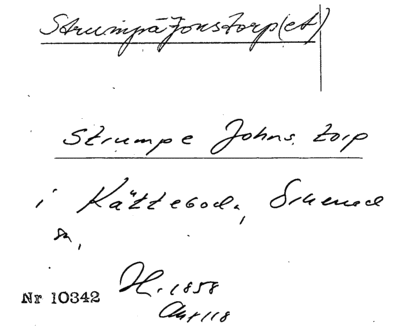 Strumpå Jonstorp(et)
Strumpe Johns. torp
i Kättebod., Skened
sn,
Nr 10342 H. 1858
Ant 118